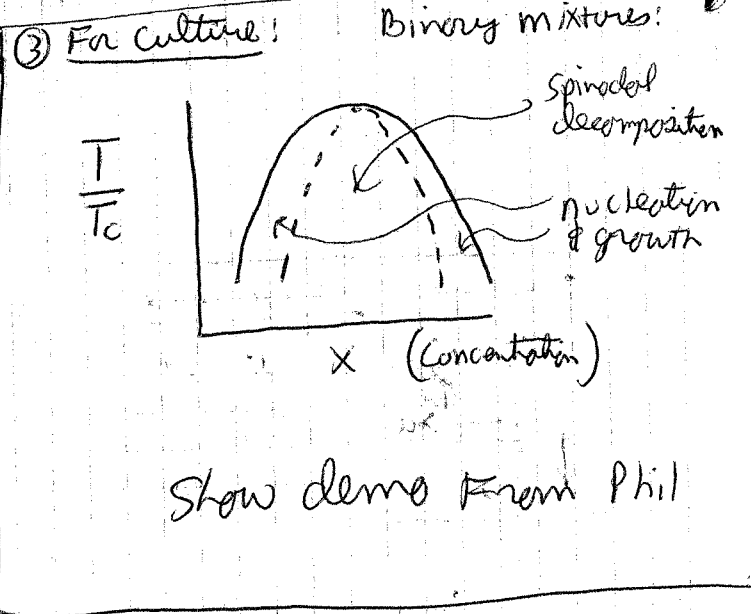 ③ For culture! Binary mixtures:
spinodal
decomposition
T
Tc
nucleation
& growth
X (Concentration)
Show demo From Phil